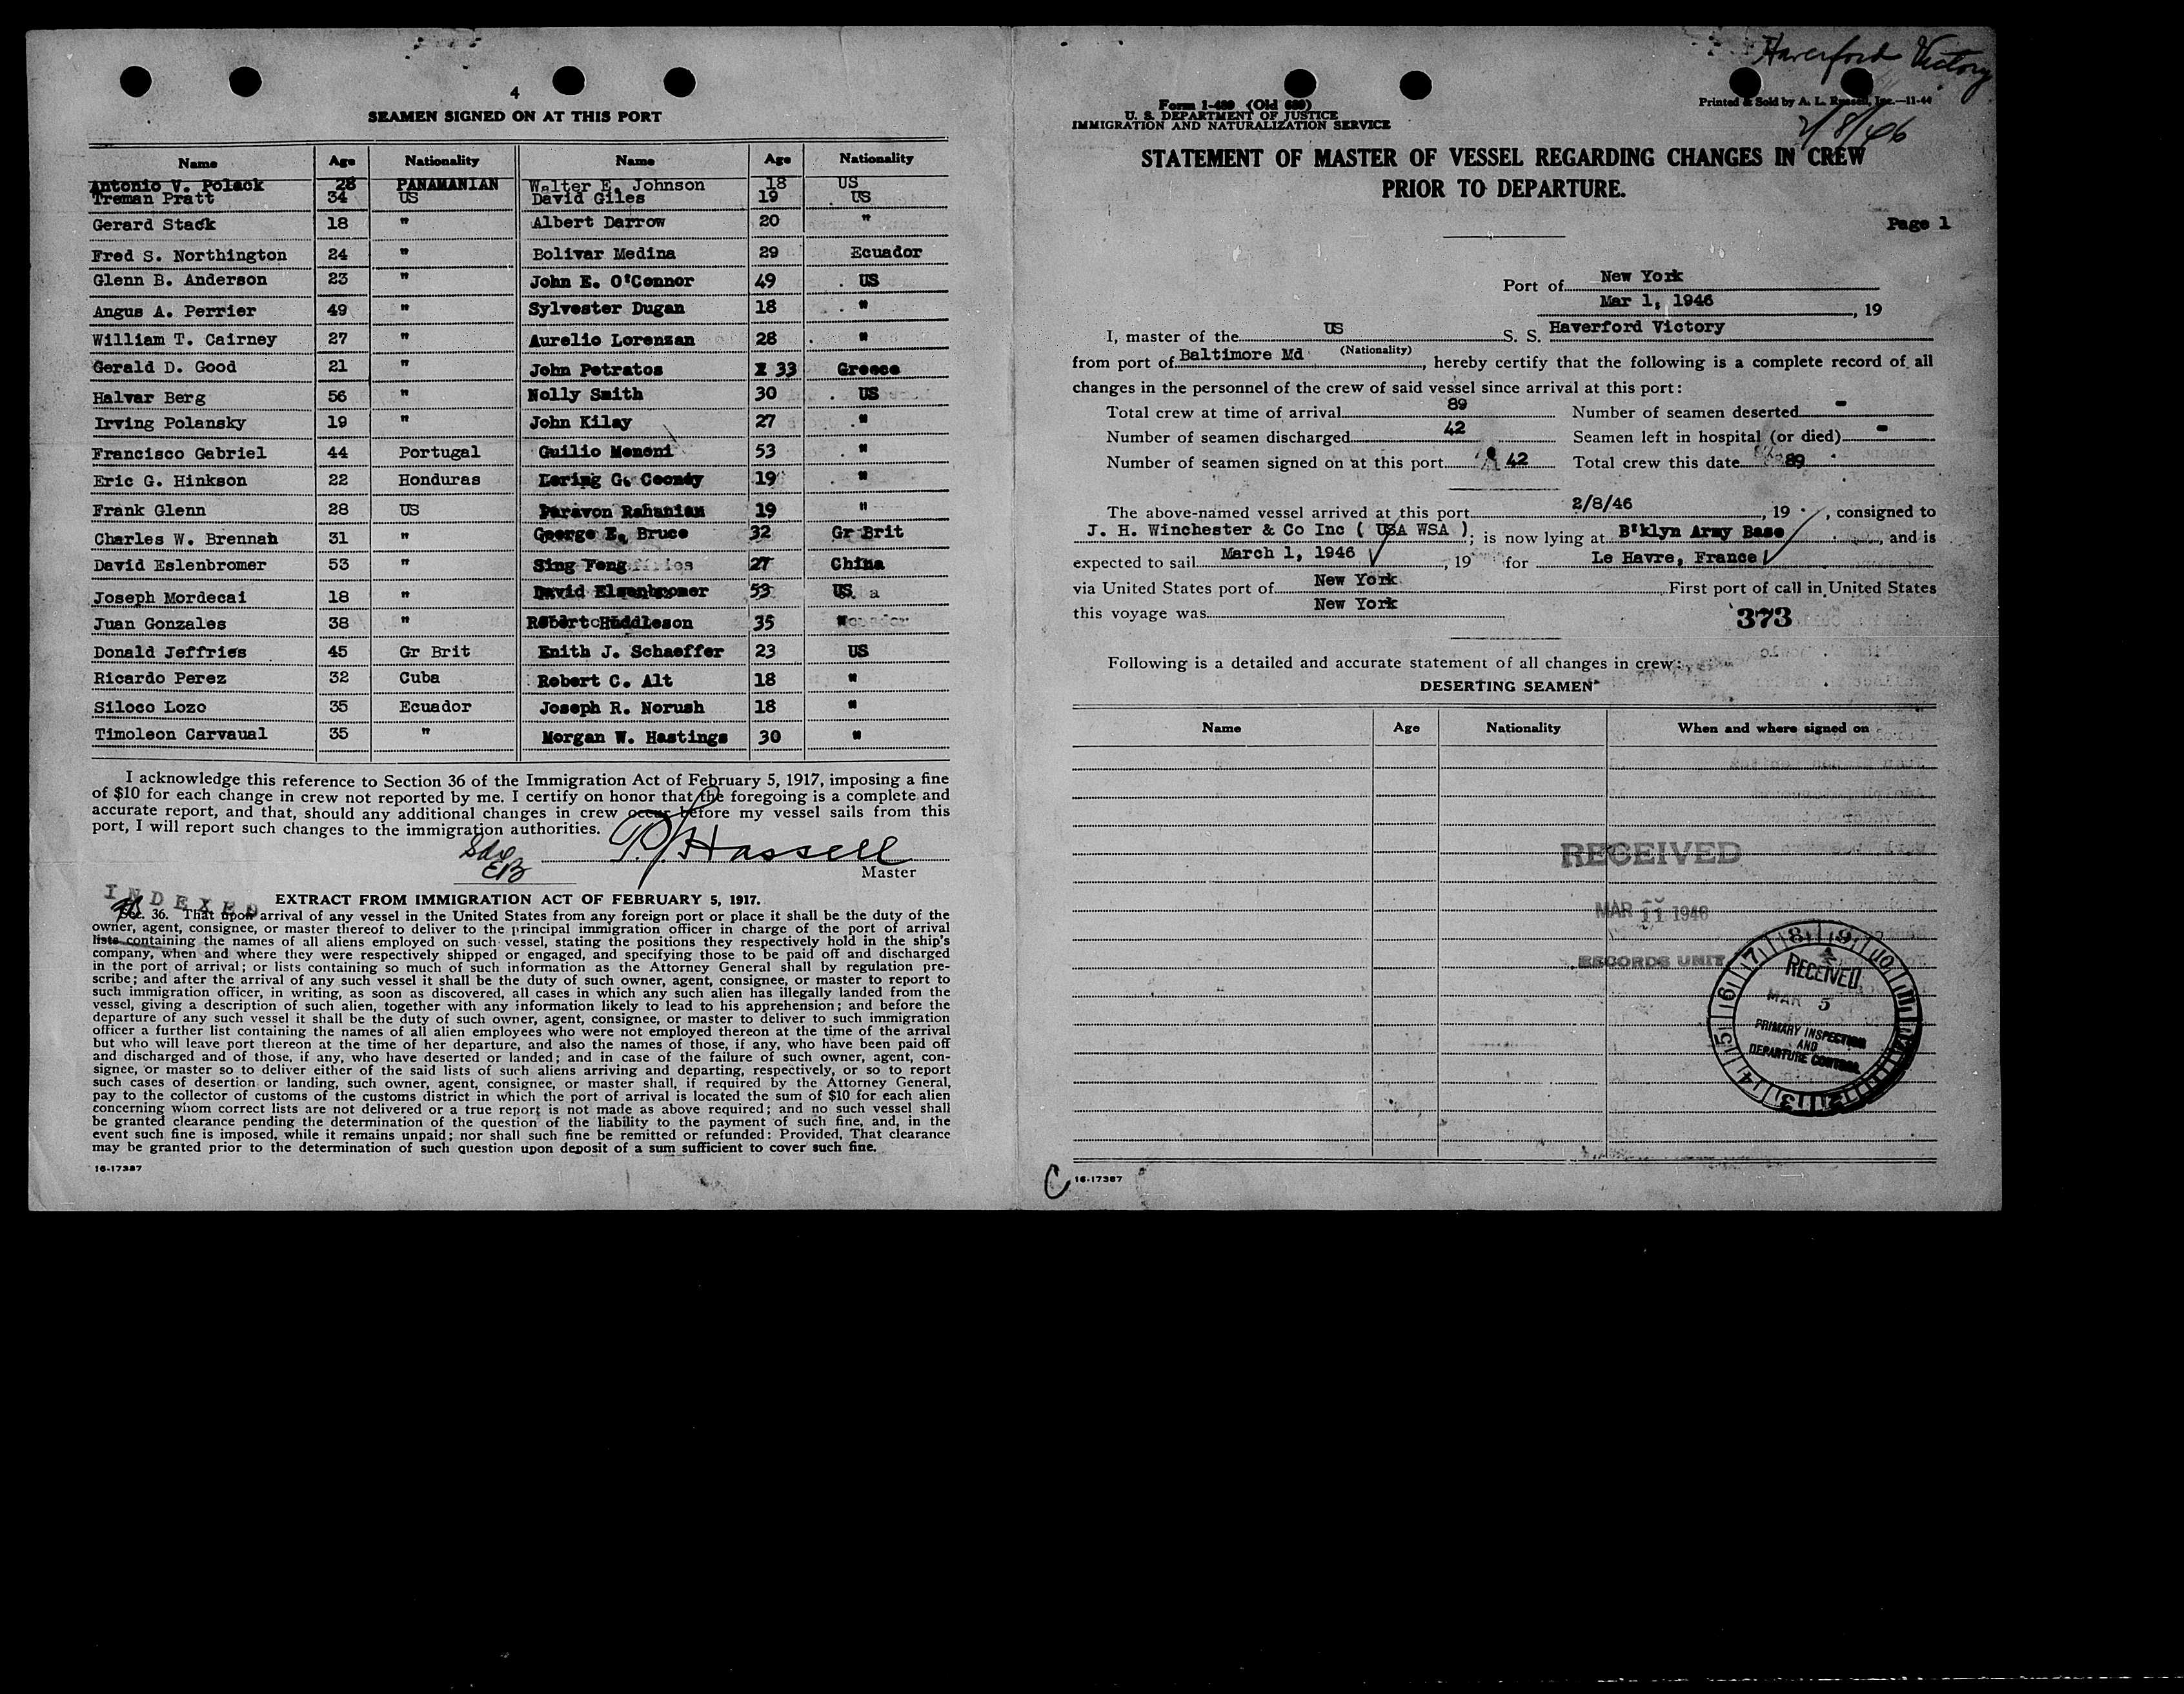 4
SEAMEN SIGNED ON AT THIS PORT
Name Age Nationality Name Age Nationality
Antonio V. Polack 28 PANAMANIAN Walter E. Johnson 18 US
Treman Pratt 34 US David Giles 19 US
Gerard Stack 18 " Albert Darrow 20 "
Fred S. Northington 24 " Bolivar Medina 29 Ecuador
Glenn B. Anderson 23 " John E. O'Connor 49 US
Angus A. Perrier 49 " Sylvester Dugan 18 "
William T. Cairney 27 " Aurelio Lorenzan 28 "
Gerald D. Good 21 " John Petratos 33 Greece
Halvar Berg 56 " Nolly Smith 30 US
Irving Polansky 19 " John Kilay 27 "
Francisco Gabriel 44 Portugal Guilio Menoni 53 "
Eric G. Hinkson 22 Honduras Loring G. 19 "
Frank Glenn 28 US Paravon Rahanian 19 "
Charles W. Brennan 31 " George E. Bruce 32 Gr Brit
David Eslenbromer 53 " Sing Fong 27 China
Joseph Mordecai 18 " David Elsenbromer 53 US
Juan Gonzales 38 " Robert Huddleson 35 "
Donald Jeffries 45 Gr Brit Enith J. Schaeffer 23 US
Ricardo Perez 32 Cuba Robert C. Alt 18 "
Siloco Lozo 35 Ecuador Joseph R. Norush 18 "
Timoleon Carvaual 35 " Morgan W. Hastings 30 "
I acknowledge this reference to Section 36 of the Immigration Act of February 5, 1917, imposing a fine
of $10 for each change in crew not reported by me. I certify on honor that the foregoing is a complete and
accurate report, and that, should any additional changes in crew occur before my vessel sails from this
port, I will report such changes to the immigration authorities.
Hassell
Master
INDEXED
EXTRACT FROM IMMIGRATION ACT OF FEBRUARY 5, 1917.
Sec. 36. That upon arrival of any vessel in the United States from any foreign port or place it shall be the duty of the
owner, agent, consignee, or master thereof to deliver to the principal immigration officer in charge of the port of arrival
lists containing the names of all aliens employed on such vessel, stating the positions they respectively hold in the ship's
company, when and where they were respectively shipped or engaged, and specifying those to be paid off and discharged
in the port of arrival; or lists containing so much of such information as the Attorney General shall by regulation pre-
scribe; and after the arrival of any such vessel it shall be the duty of such owner, agent, consignee, or master to report to
such immigration officer, in writing, as soon as discovered, all cases in which any such alien has illegally landed from the
vessel, giving a description of such alien, together with any information likely to lead to his apprehension; and before the
departure of any such vessel it shall be the duty of such owner, agent, consignee, or master to deliver to such immigration
officer a further list containing the names of all alien employees who were not employed thereon at the time of the arrival
but who will leave port thereon at the time of her departure, and also the names of those, if any, who have been paid off
and discharged and of those, if any, who have deserted or landed; and in case of the failure of such owner, agent, con-
signee, or master so to deliver either of the said lists of such aliens arriving and departing, respectively, or so to report
such cases of desertion or landing, such owner, agent, consignee, or master shall, if required by the Attorney General,
pay to the collector of customs of the customs district in which the port of arrival is located the sum of $10 for each alien
concerning whom correct lists are not delivered or a true report is not made as above required; and no such vessel shall
be granted clearance pending the determination of the question of the liability to the payment of such fine, and, in the
event such fine is imposed, while it remains unpaid; nor shall such fine be remitted or refunded: Provided, That clearance
may be granted prior to the determination of such question upon deposit of a sum sufficient to cover such fine.
16-17387
Haverford Victory
2/8/46
Form I-489 (Old 689)
U. S. DEPARTMENT OF JUSTICE
IMMIGRATION AND NATURALIZATION SERVICE
Printed & Sold by A. L. Russell, Inc.—11-44
STATEMENT OF MASTER OF VESSEL REGARDING CHANGES IN CREW
PRIOR TO DEPARTURE.
Page 1
Port of New York
Mar 1, 1946, 19
I, master of the US S. S. Haverford Victory
(Nationality)
from port of Baltimore Md, hereby certify that the following is a complete record of all
changes in the personnel of the crew of said vessel since arrival at this port:
Total crew at time of arrival 89 Number of seamen deserted -
Number of seamen discharged 42 Seamen left in hospital (or died) -
Number of seamen signed on at this port 42 Total crew this date 89
The above-named vessel arrived at this port 2/8/46, 19 , consigned to
J. H. Winchester & Co Inc ( USA WSA ); is now lying at B'klyn Army Base, and is
expected to sail March 1, 1946, 19 for Le Havre, France
via United States port of New York First port of call in United States
this voyage was New York
373
Following is a detailed and accurate statement of all changes in crew:
DESERTING SEAMEN
Name Age Nationality When and where signed on
RECEIVED
MAR 11 1946
RECORDS UNIT
RECEIVED
MAR 5
PRIMARY INSPECTION
AND
DEPARTURE CONTROL
16-17387